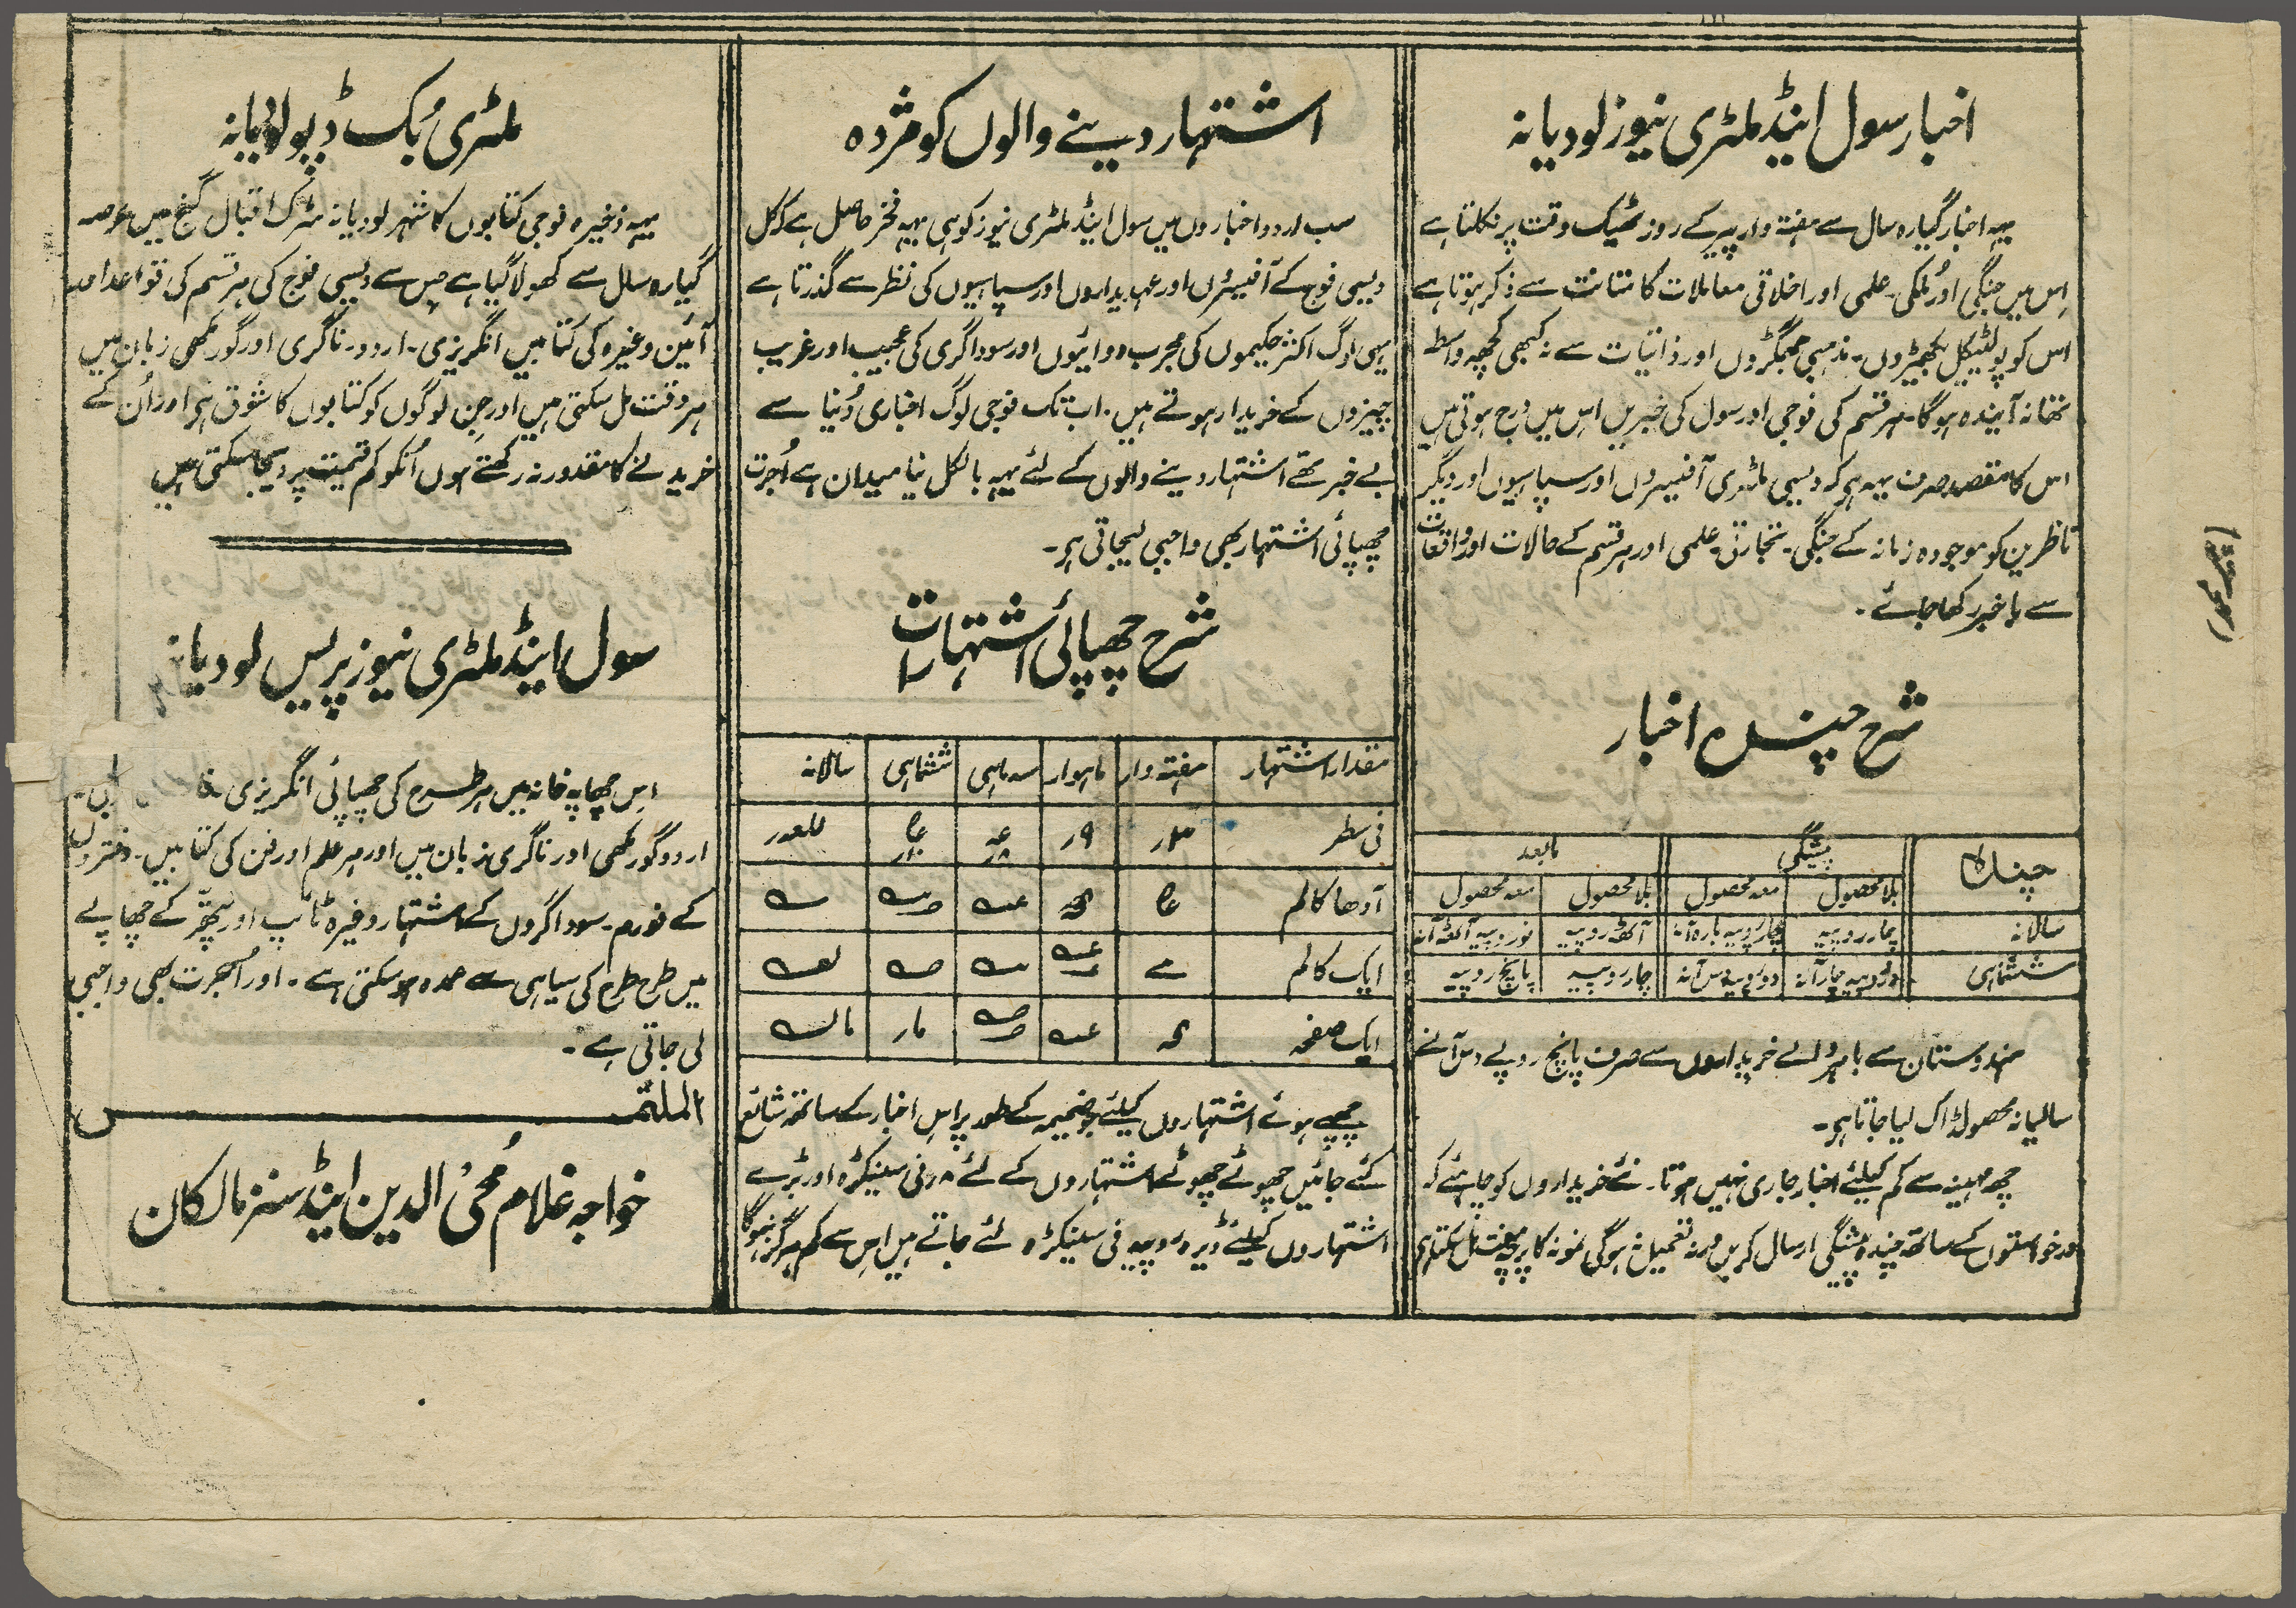 اخبار سول اینڈ ملٹری نیوز لودیانہ
یہہ اخبار گیارہ سال سے ہفتہ وار پیر کے روز ٹھیک وقت پر نکلتا ہے
اِس میں جنگی اور مُلکی۔ علمی اور اخلاقی معاملات کا متانت سے ذکر ہوتا ہے
اس کو پولٹیکل بکھیڑوں۔ مذہبی جھگڑوں اور ذاتیات سے نہ کبھی کچھہ واسطہ
تھا نہ آیندہ ہوگا۔ ہر قسم کی فوجی اور سول کی خبریں اس میں درج ہوتی ہیں
اس کا مقصد صرف یہہ ہی کہ دیسی ملٹری آفیسروں اور سپاہیوں اور دیگر
ناظرین کو موجودہ زمانہ کے جنگی۔ تجارتی۔ علمی اور ہر قسم کے حالات اور واقعات
سے باخبر رکھا جائے۔
شرح چندہ اخبار
چندہ | پیشگی | مابعد
بلا محصول | معہ محصول | بلا محصول | معہ محصول
سالانہ | چار روپیہ | چار روپیہ بارہ آنہ | آٹھہ روپیہ | نو روپیہ آٹھہ آنہ
ششماہی | دو روپیہ چار آنہ | دو روپیہ دس آنہ | چار روپیہ | پانچ روپیہ
ہندوستان سے باہر والے خریداروں سے صرف پانچ روپے دس آنے
سالیانہ محصولڈاک لیا جاتا ہی۔
چھہ مہینہ سے کم کیلئے اخبار جاری نہیں ہوتا۔ نئے خریداروں کو چاہئے کہ
درخواستوں کے ساتھہ چندہ پیشگی ارسال کریں ورنہ تعمیل نہ ہوگی نمونہ کا پرچہ مفت مل سکتا ہی
اشتہار دینے والوں کو مژدہ
سب اردو اخباروں میں سول اینڈ ملٹری نیوز کو ہی یہہ فخر حاصل ہے کہ کل
دیسی فوج کے آفیسروں اور عہدیداروں اور سپاہیوں کی نظر سے گذرتا ہے
یہی لوگ اکثر حکیموں کی مجرب دوائیوں اور سوداگری کی عجیب اور غریب
چیزوں کے خریدار ہوتے ہیں۔ اب تک فوجی لوگ اخباری دُنیا سے
بے خبر تھے اشتہار دینے والوں کے لئے یہہ بالکل نیا میدان ہے اُجرت
چھپائی اشتہار بھی واجبی لیجاتی ہی۔
شرح چھپائی اشتہارات
مقدار اشتہار | ہفتہ وار | ماہوار | سہ ماہی | ششماہی | سالانہ
فی سطر
آدھا کالم
ایک کالم
ایک صفحہ
چھپے ہوئے اشتہاروں کیلئے جو ضمیمہ کے طور پر اس اخبار کے ساتھہ شائع
کئے جائیں چھوٹے چھوٹے اشتہاروں کے لئے ۸ر فی سینکڑہ اور بڑے
اشتہاروں کیلئے ڈیڑہ روپیہ فی سینکڑہ لئے جاتے ہیں اس سے کم ہرگز نہوگا
ملٹری بُک ڈپو لودیانہ
یہہ ذخیرہ فوجی کتابوں کا شہر لودیانہ سڑک اقبال گنج میں عرصہ
گیارہ سال سے کھولا گیا ہے جس سے دیسی فوج کی ہر قسم کی قواعد اور
آئین وغیرہ کی کتابیں انگریزی۔ اردو۔ ناگری اور گورمکھی زبان میں
ہر وقت مل سکتی ہیں اور جن لوگوں کو کتابوں کا شوق ہی اور اُن کے
خریدنے کا مقدور نہ رکھتے ہوں اُنکو کم قیمت پر دیجا سکتی ہیں
سول اینڈ ملٹری نیوز پریس لودیانہ
اِس چھاپہ خانہ میں ہر طرح کی چھپائی انگریزی۔
اردو گورمکھی اور ناگری زبان میں اور ہر علم اور فن کی کتابیں۔ دفتروں
کے فورم۔ سوداگروں کے اشتہار وغیرہ ٹائپ اور پتھر کے چھاپے
میں طرح طرح کی سیاہی سے عمدہ ہو سکتی ہے۔ اور اُجرت بھی واجبی
لی جاتی ہے۔
الملتمس
خواجہ غلام مُحیُ الدین اینڈ سنز مالکان